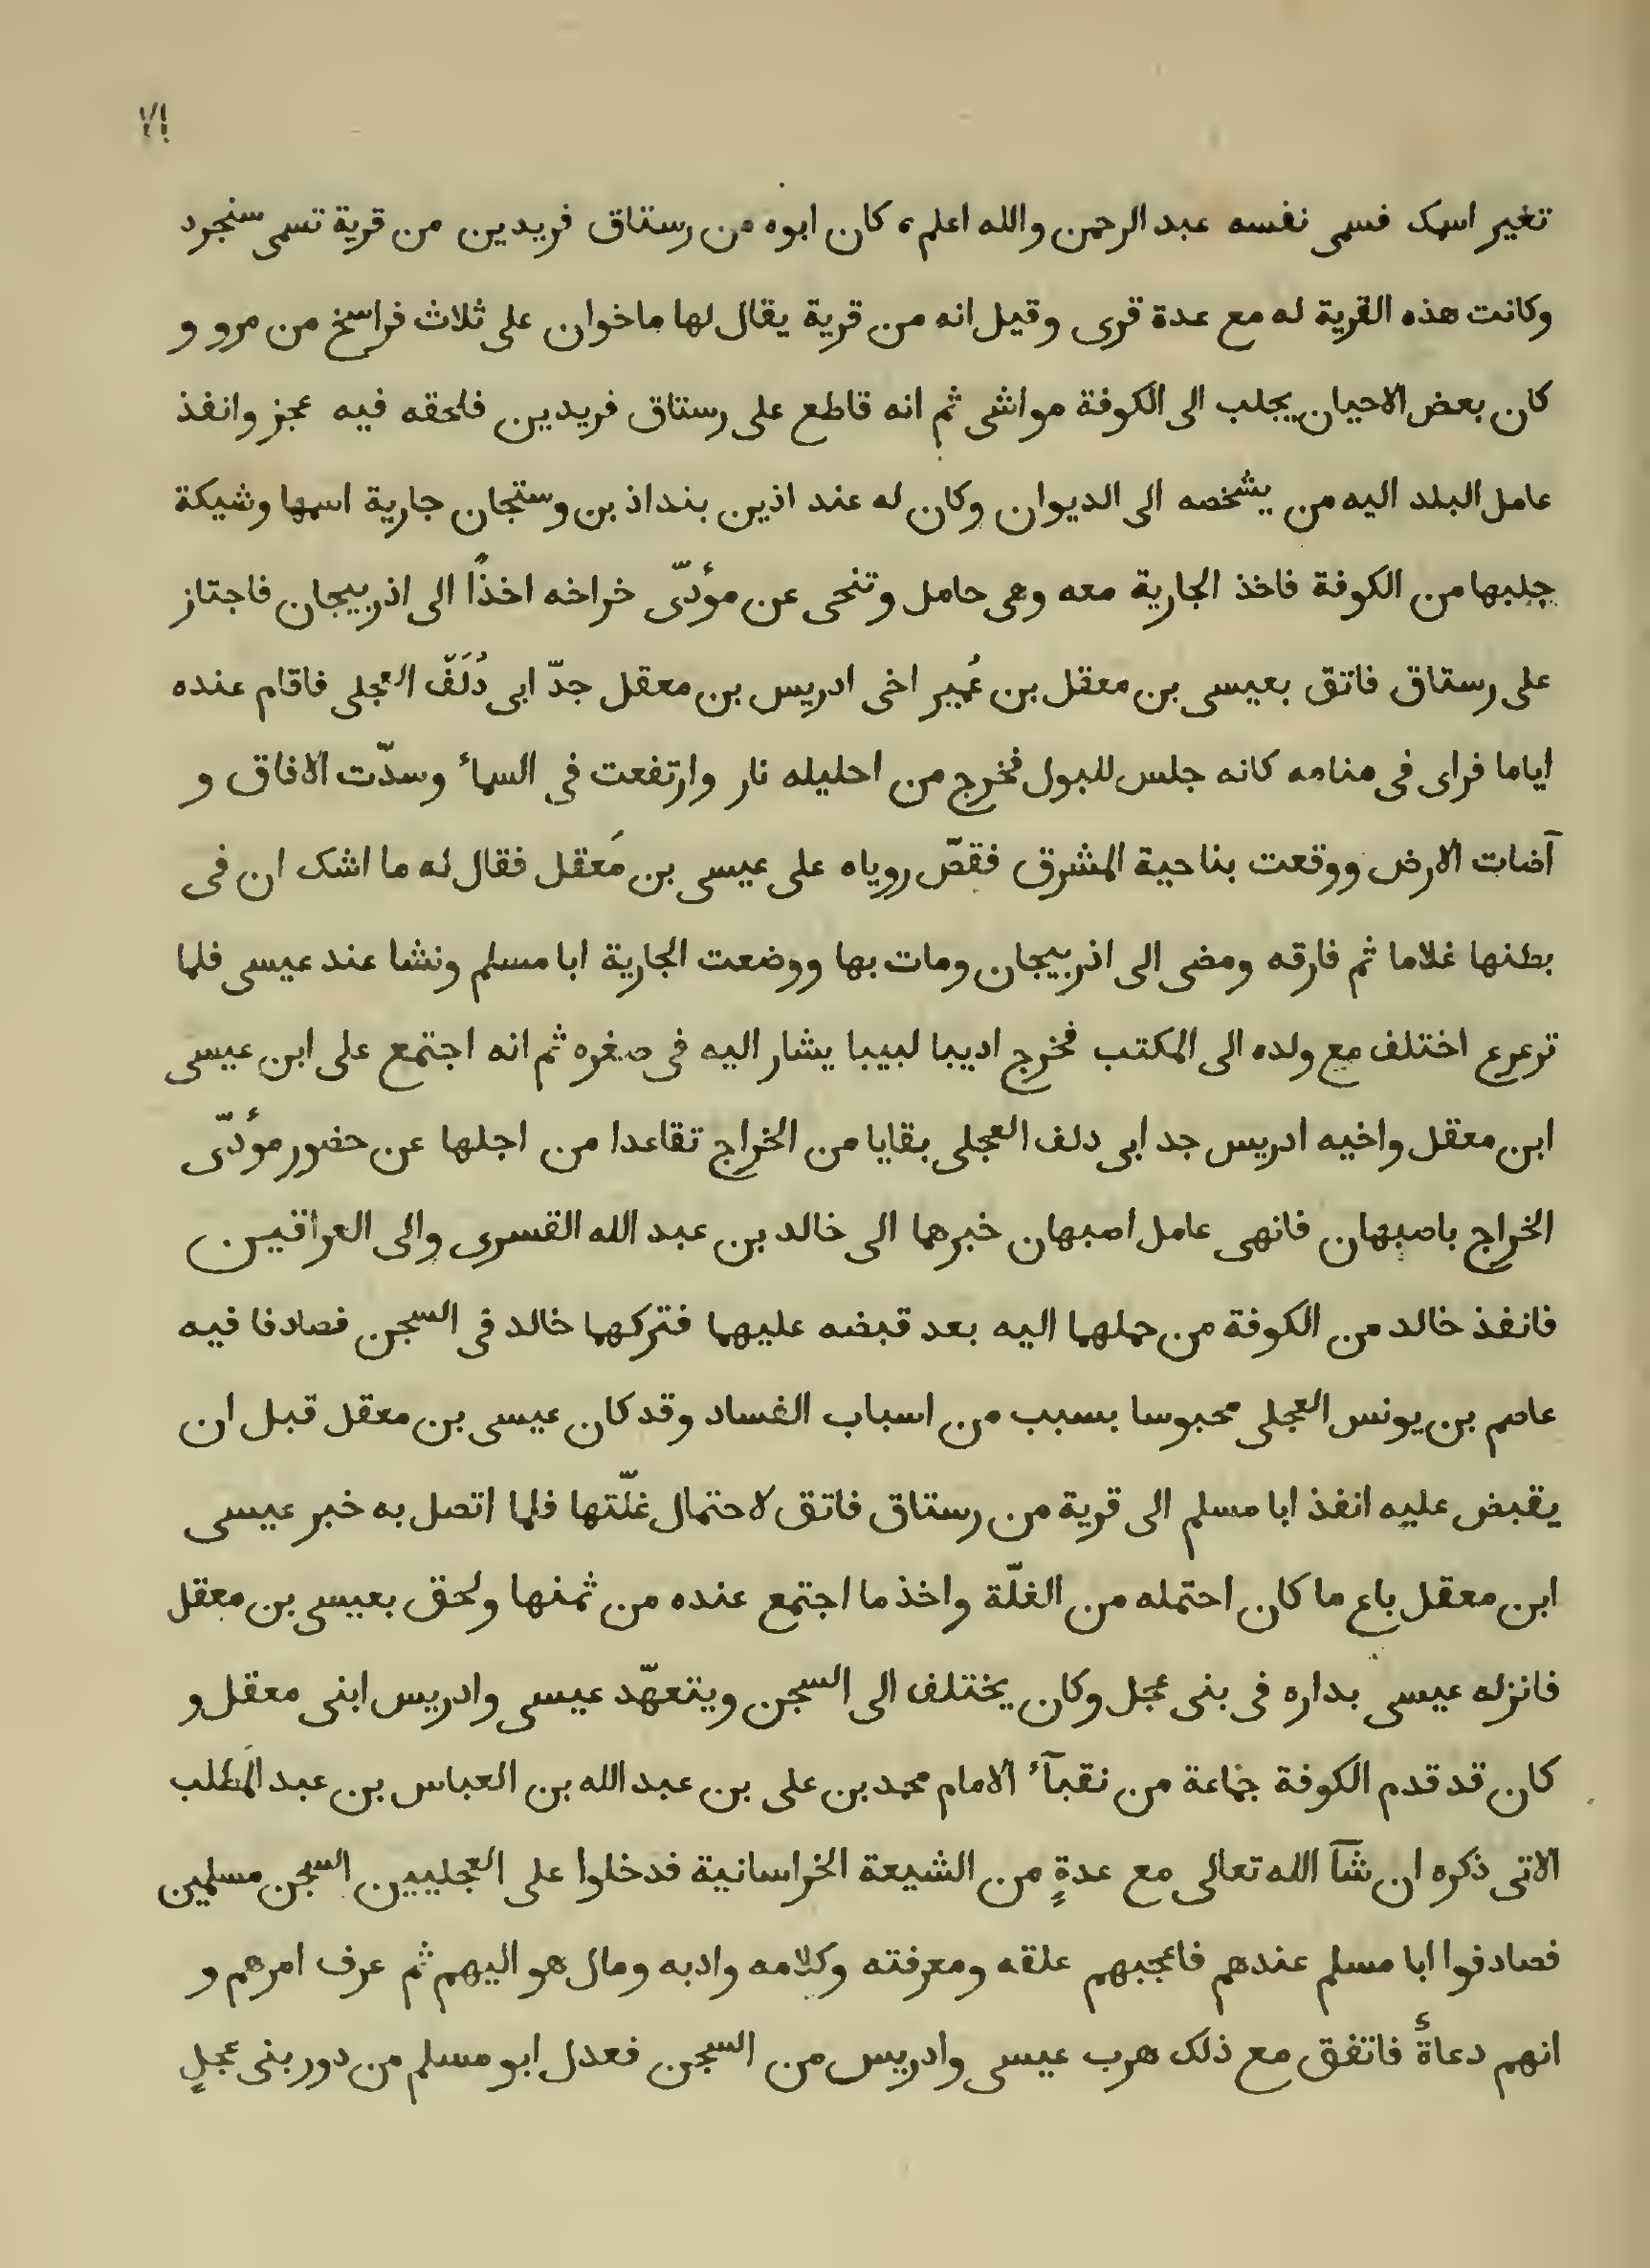 ٧١
تغير اسمك فسمى نفسه عبد الرحمن والله اعلم، كان ابوه من رستاق فريدين من قرية تسمى سنجرد
وكانت هذه القرية له مع عدة قرى وقيل انه من قرية يقال لها ماخوان على ثلاث فراسخ من مرو و
كان بعض الاحيان يجلب الى الكوفة مواشى ثم انه قاطع على رستاق فريدين فلحقه فيه عجز وانفذ
عامل البلد اليه من يشخصه الى الديوان وكان له عند اذين بنداذ بن وستجان جارية اسمها وشيكة
جلبها من الكوفة فاخذ الجارية معه وهى حامل وتنحى عن مؤدّى خراخه اخذًا الى اذربيجان فاجتاز
على رستاق فاتق بعيسى بن معقل بن عُمير اخى ادريس بن معقل جدّ ابى دُلَفّ العجلى فاقام عنده
اياما فراى فى منامه كانه جلس للبول فخرج من احليله نار وارتفعت فى السماء وسدّت الافاق و
آضات الارض ووقعت بناحية المشرق فقصّ روياه على عيسى بن مَعقل فقال له ما اشك ان فى
بطنها غلاما ثم فارقه ومضى الى اذربيجان ومات بها ووضعت الجارية ابا مسلم ونشا عند عيسى فلما
ترعرع اختلف مع ولده الى المكتب فخرج اديبا لبيبا يشار اليه فى صغره ثم انه اجتمع على ابن عيسى
ابن معقل واخيه ادريس جد ابى دلف العجلى بقايا من الخراج تقاعدا من اجلها عن حضور مؤدّى
الخراج باصبهان فانهى عامل اصبهان خبرهما الى خالد بن عبد الله القسرى والى العراقين
فانفذ خالد من الكوفة من حملهما اليه بعد قبضه عليهما فتركهما خالد فى السجن فصادفا فيه
عاصم بن يونس العجلى محبوسا بسبب من اسباب الفساد وقد كان عيسى بن معقل قبل ان
يقبض عليه انفذ ابا مسلم الى قرية من رستاق فاتق لاحتمال غلّتها فلما اتصل به خبر عيسى
ابن معقل باع ما كان احتمله من الغلّة واخذ ما اجتمع عنده من ثمنها ولحق بعيسى بن معقل
فانزله عيسى بداره فى بنى عجل وكان يختلف الى السجن ويتعهّد عيسى وادريس ابنى معقل و
كان قد قدم الكوفة جماعة من نقبآء الامام محمد بن على بن عبد الله بن العباس بن عبد المَطلب
الاتى ذكره ان شآ الله تعالى مع عدةٍ من الشيعة الخراسانية فدخلوا على العجليين السجن مسلمين
فصادفوا ابا مسلم عندهم فاعجبهم علقه ومعرفته وكلامه وادبه ومال هو اليهم ثم عرف امرهم و
انهم دعاةٌ فاتفق مع ذلك هرب عيسى وادريس من السجن فعدل ابو مسلم من دور بنى عجلٍ